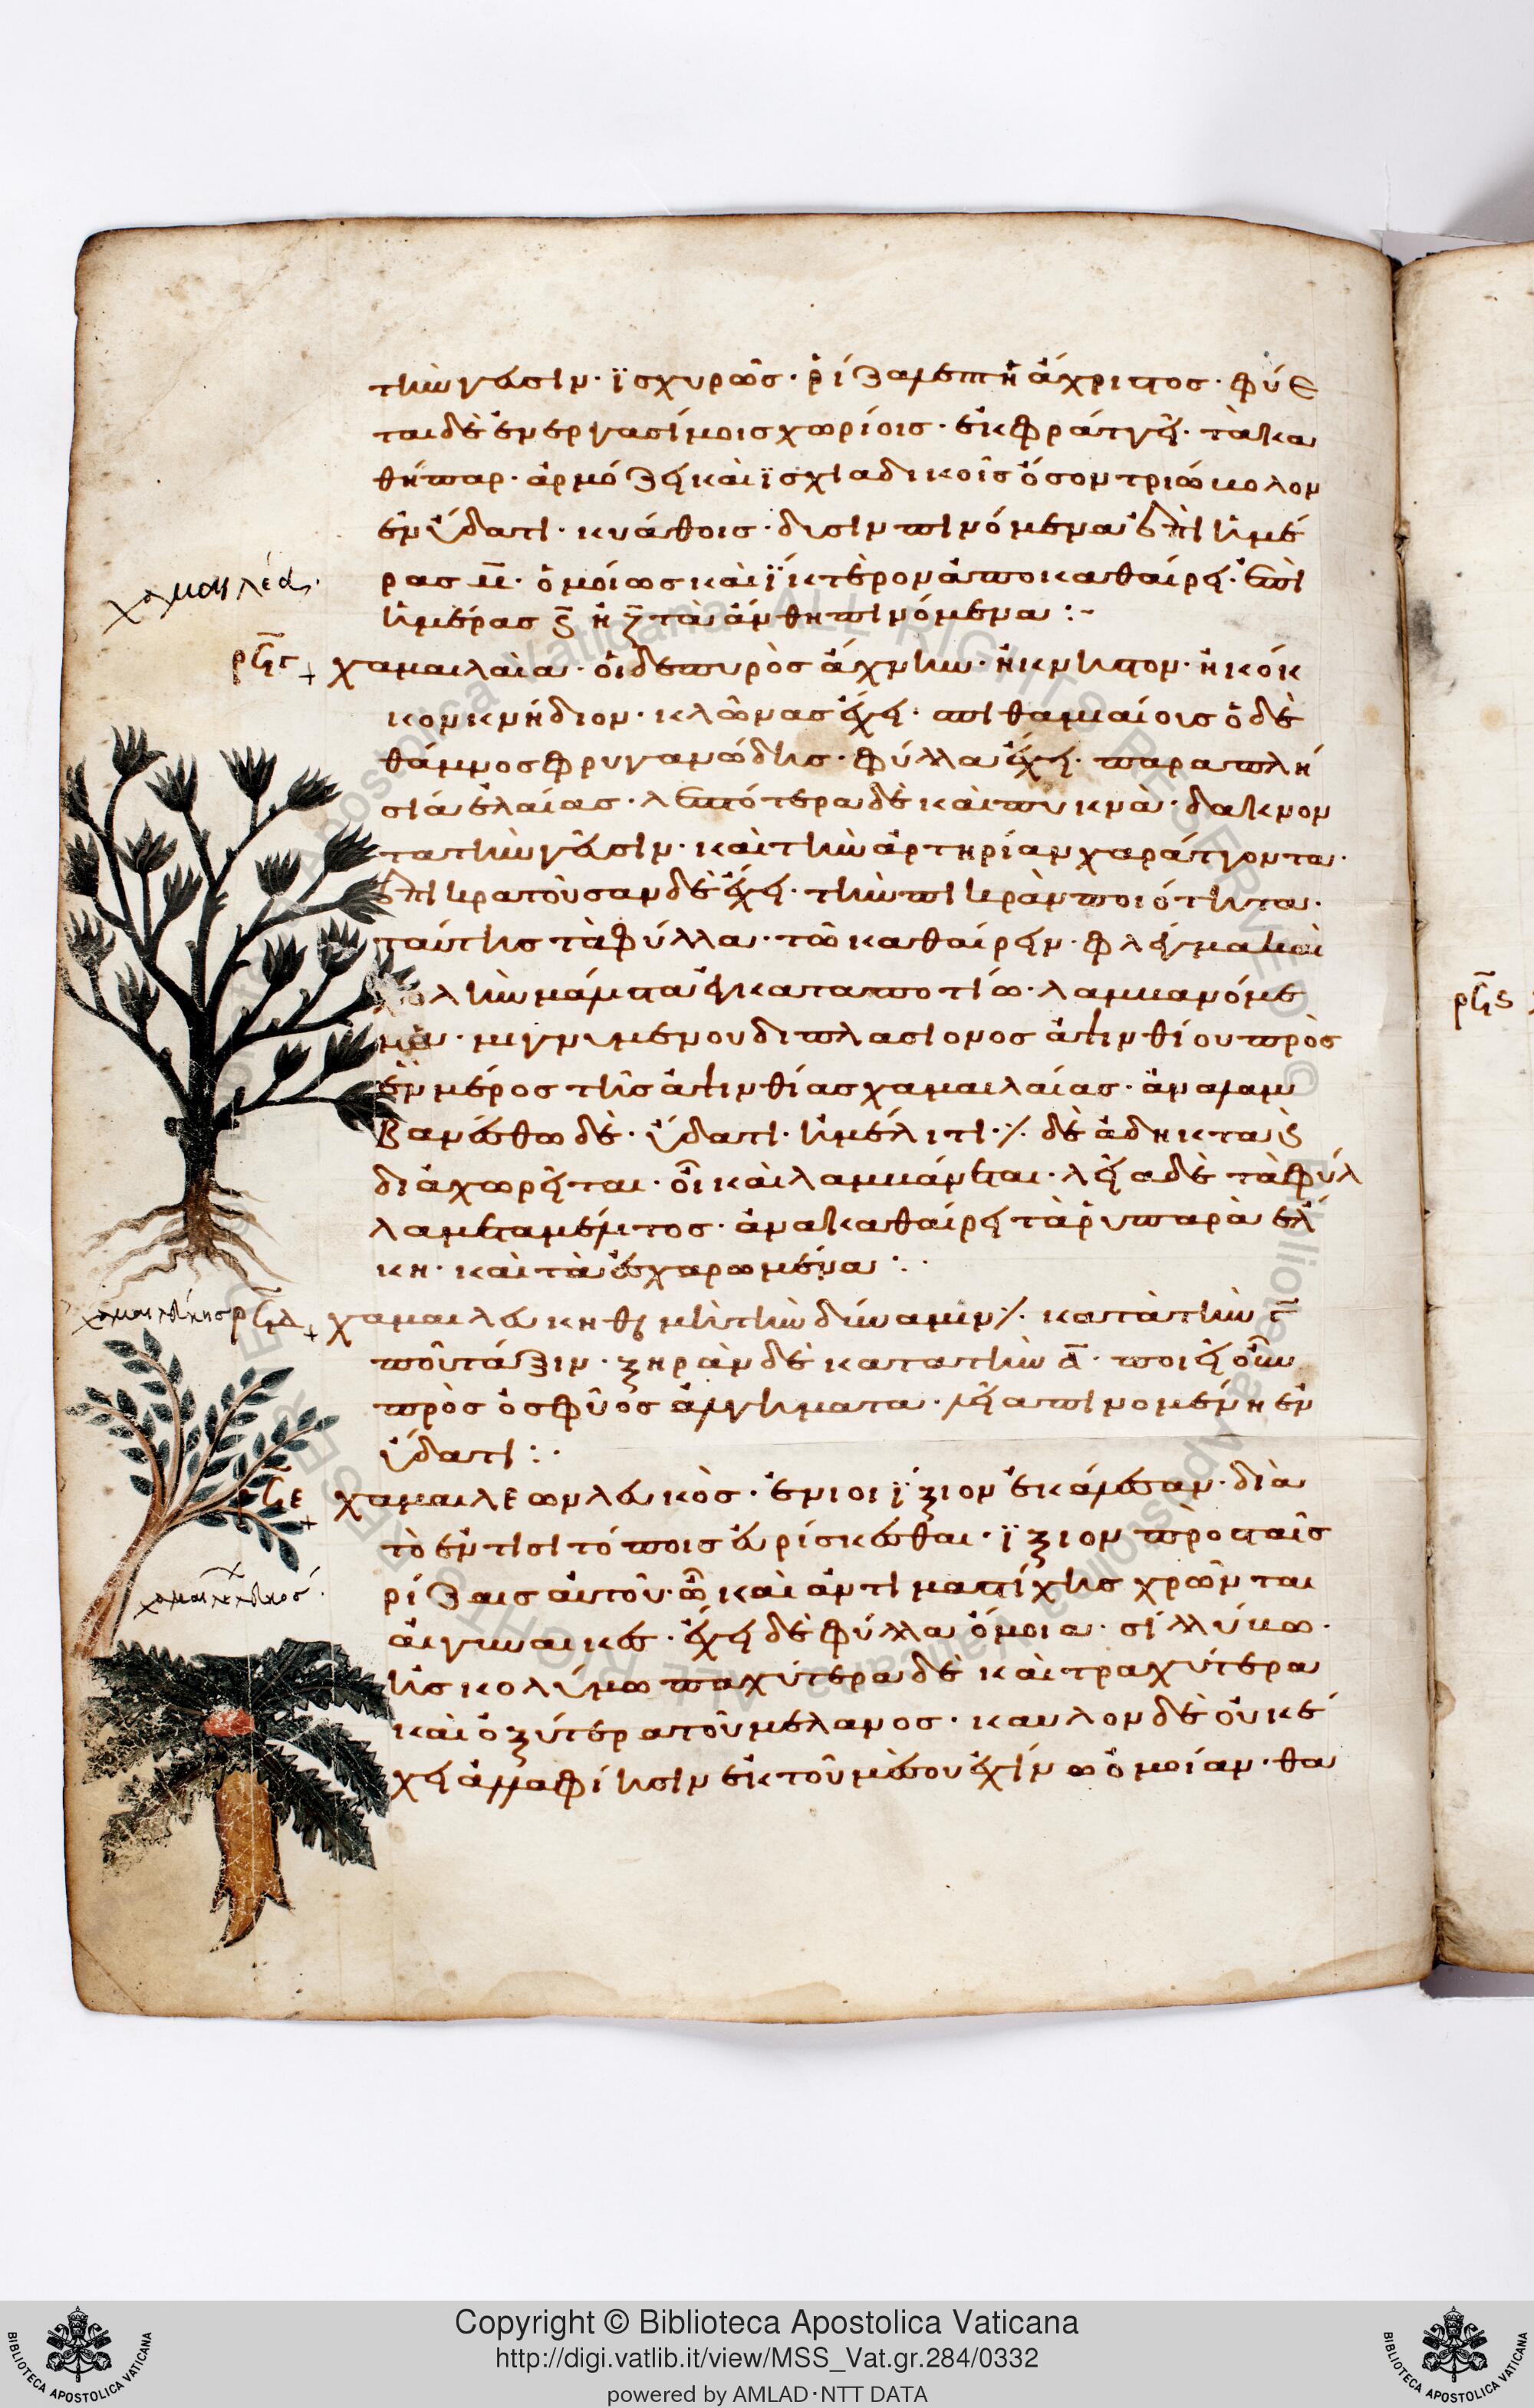 τὴν γεῦσιν· ϊσχυρῶσ· ρίζα λεπτὴ ἄχριστοσ· φύε
ται δὲ ἐν ἐργασίμοισ χωρίοισ· ἐκφράττει· τὰ κα
θ ἥπαρ· ἁρμόζει καὶ ϊσχιαδικοῖσ ὅσον τριώβολον
ἐν ὕδατι· κυάθοισ· δυσὶν πινόμενα ἐπὶ ἡμέ
ρασ μ̄· ὁμοίωσ καὶ ϊκτερον ἀποκαθαίρει· ἐπὶ
χαμαιλέα
ἡμέρασ ϛ̄ ἢ ζ̄ τὰ ἄνθη πινόμενα :-
ρϟγ χαμαιλαία· οἱ δὲ πυρὸσ ἄχνην· ἢ κνηστον· ἢ κόκ
κον κνήδιον· κλῶνασ ἔχει· σπιθαμιαίουσ ὁ δὲ
θάμνοσ φρυγανώδησ· φύλλα ἔχει· παραπλή
σια ἐλαίασ· λεπτότερα δὲ καὶ πυκνὰ· δακνον
τα τὴν γεῦσιν· καὶ τὴν ἀρτηρίαν χαράττοντα·
ἐπικρατοῦσαν δὲ ἔχει· τὴν πικρὰν ποιότητα·
ταύτησ τὰ φύλλα· τῶ καθαίρειν· φλέγμα καὶ
χολὴν μάλιστα ἐν καταποτίω· λαμβανόμε
να· μιγνυμένου διπλασίονοσ ἀψινθίου πρὸσ
ἓν μέροσ τῆσ ἀψινθίασ χαμαιλαίασ· ἀναλαμ
βανέσθω δὲ· ὕδατι· ἢ μέλιτι·
διαχωρεῖται· οἷ καὶ λαμβάνεται· λεῖα δὲ τὰ φύλ
λα μετα μέλιτοσ· ἀνακαθαίρει τὰ ῥυπαρὰ ἕλ
κη· καὶ τὰ ἐσχαρωμένα :·
χαμαιλεύκησ ρϟδ χαμαιλεύκη θερμὴ τὴν δύναμιν κατὰ τὴν γ̄
που τάξιν· ξηρὰν δὲ κατα τὴν ᾱ· ποιεῖ οὖν
πρὸσ ὀσφύοσ ἀλγήματα· λεῖα πινομένη ἐν
ὕδατι :·
ϟε χαμαιλεων λευκὸσ· ἔνιοι ϊξιον ἐκάλεσαν· διὰ
τὸ ἔν τισι τόποισ εὑρίσκεσθαι· ϊξιον πρὸσ ταῖσ
χαμαιλέων λευκοσ
ρίζαισ αὐτοῦ· ὧ καὶ ἀντὶ μαστίχησ χρῶνται
αἱ γυναικεσ· ἔχει δὲ φύλλα ὅμοια· σιλλύκω·
ἢ σκολύμω παχύτερα δὲ καὶ τραχύτερα
καὶ ὀξύτερα τοῦ μέλανοσ· καυλον δὲ οὐκ ἔ
χει ἀλλ ἀφίησιν ἐκ τοῦ μέσου ἐχίνω ὁμοίαν· θα
ρϟϛ
Copyright © Biblioteca Apostolica Vaticana
http://digi.vatlib.it/view/MSS_Vat.gr.284/0332
powered by AMLAD·NTT DATA
BIBLIOTECA APOSTOLICA VATICANA
BIBLIOTECA APOSTOLICA VATICANA